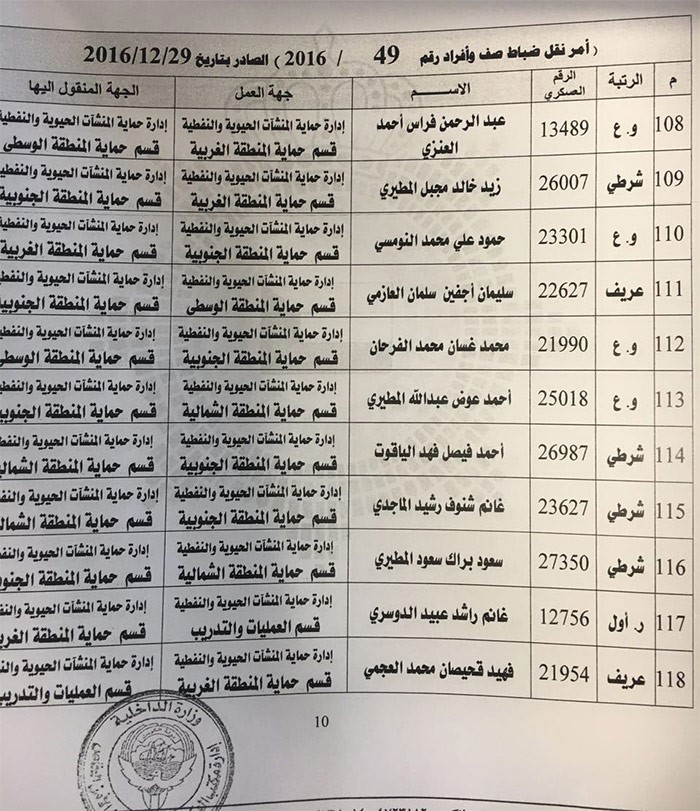 ( أمر نقل ضباط صف وأفراد رقم 49 / 2016 ) الصادر بتاريخ 2016/12/29
م الرتبة الرقم العسكري الاســـــم جهة العمل الجهة المنقول اليها
108 و.ع 13489 عبد الرحمن فراس أحمد العنزي إدارة حماية المنشآت الحيوية والنفطية إدارة حماية المنشآت الحيوية والنفطية
قسم حماية المنطقة الغربية قسم حماية المنطقة الوسطى
109 شرطي 26007 زيد خالد مجبل المطيري إدارة حماية المنشآت الحيوية والنفطية إدارة حماية المنشآت الحيوية والنفطية
قسم حماية المنطقة الغربية قسم حماية المنطقة الجنوبية
110 و.ع 23301 حمود علي محمد النومسي إدارة حماية المنشآت الحيوية والنفطية إدارة حماية المنشآت الحيوية والنفطية
قسم حماية المنطقة الجنوبية قسم حماية المنطقة الغربية
111 عريف 22627 سليمان أجفين سلمان العازمي إدارة حماية المنشآت الحيوية والنفطية إدارة حماية المنشآت الحيوية والنفطية
قسم حماية المنطقة الوسطى قسم حماية المنطقة الجنوبية
112 و.ع 21990 محمد غسان محمد الفرحان إدارة حماية المنشآت الحيوية والنفطية إدارة حماية المنشآت الحيوية والنفطية
قسم حماية المنطقة الجنوبية قسم حماية المنطقة الوسطى
113 و.ع 25018 أحمد عوض عبدالله المطيري إدارة حماية المنشآت الحيوية والنفطية إدارة حماية المنشآت الحيوية والنفطية
قسم حماية المنطقة الشمالية قسم حماية المنطقة الجنوبية
114 شرطي 26987 أحمد فيصل فهد الياقوت إدارة حماية المنشآت الحيوية والنفطية إدارة حماية المنشآت الحيوية والنفطية
قسم حماية المنطقة الجنوبية قسم حماية المنطقة الشمالية
115 شرطي 23627 غانم شنوف رشيد الماجدي إدارة حماية المنشآت الحيوية والنفطية إدارة حماية المنشآت الحيوية والنفطية
قسم حماية المنطقة الجنوبية قسم حماية المنطقة الشمالية
116 شرطي 27350 سعود براك سعود المطيري إدارة حماية المنشآت الحيوية والنفطية إدارة حماية المنشآت الحيوية والنفطية
قسم حماية المنطقة الشمالية قسم حماية المنطقة الجنوبية
117 ر.أول 12756 غانم راشد عبيد الدوسري إدارة حماية المنشآت الحيوية والنفطية إدارة حماية المنشآت الحيوية والنفطية
قسم العمليات والتدريب قسم حماية المنطقة الغربية
118 عريف 21954 فهيد قحيصان محمد العجمي إدارة حماية المنشآت الحيوية والنفطية إدارة حماية المنشآت الحيوية والنفطية
قسم حماية المنطقة الغربية قسم العمليات والتدريب
10
وزارة الداخلية